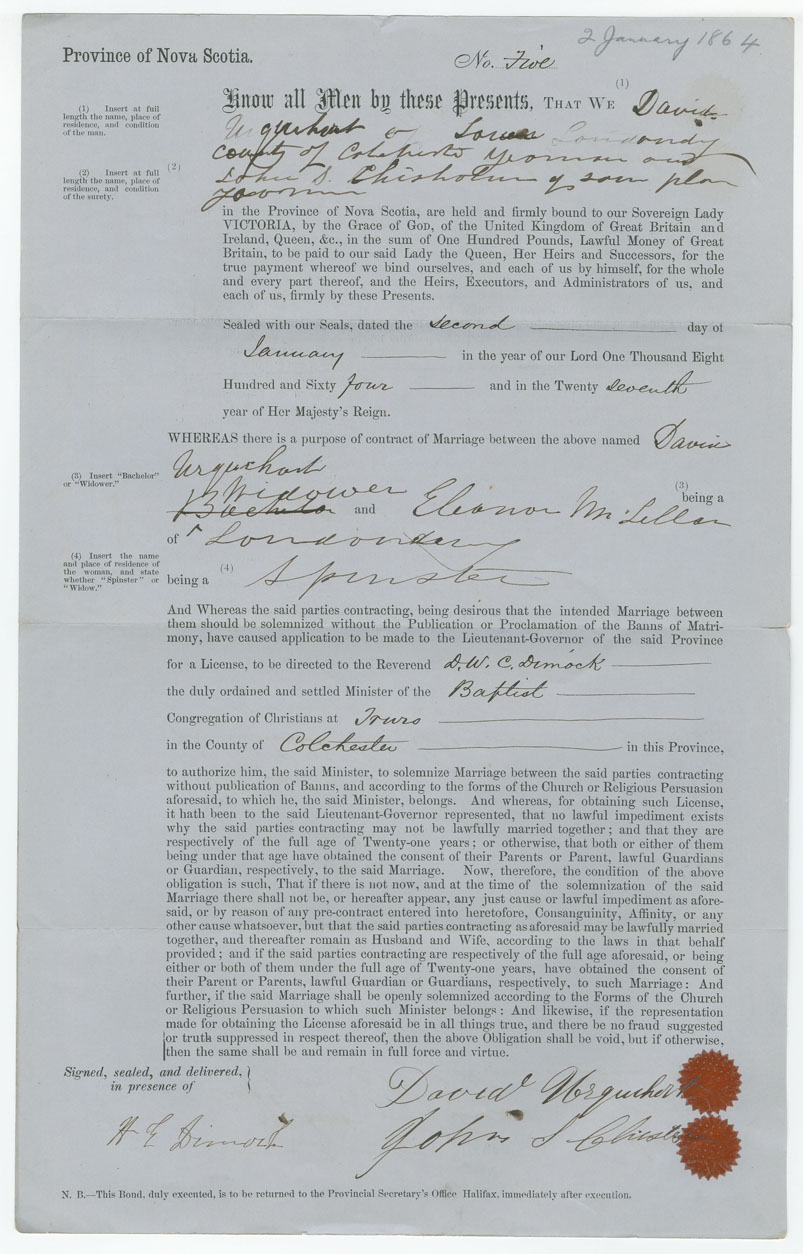 2 January 1864
Province of Nova Scotia.
No. Five
(1)
Know all Men by these Presents, THAT WE David
Urquhart of Lower Londondy
county of Colchester Yeoman and
John S. Chisholm of same place
Yeoman
(1) Insert at full
length the name, place of
residence, and condition
of the man.
(2)
(2) Insert at full
length the name, place of
residence, and condition
of the surety.
in the Province of Nova Scotia, are held and firmly bound to our Sovereign Lady
VICTORIA, by the Grace of GOD, of the United Kingdom of Great Britain and
Ireland, Queen, &c., in the sum of One Hundred Pounds, Lawful Money of Great
Britain, to be paid to our said Lady the Queen, Her Heirs and Successors, for the
true payment whereof we bind ourselves, and each of us by himself, for the whole
and every part thereof, and the Heirs, Executors, and Administrators of us, and
each of us, firmly by these Presents.
Sealed with our Seals, dated the second day of
January in the year of our Lord One Thousand Eight
Hundred and Sixty four and in the Twenty seventh
year of Her Majesty's Reign.
WHEREAS there is a purpose of contract of Marriage between the above named David
Urquehart
(3) being a
(3) Insert "Bachelor"
or "Widower."
Widower
Bachelor and Eleanor McLellan
of Londonderry
(4) Insert the name
and place of residence of
the woman, and state
whether "Spinster" or
"Widow."
being a (4) Spinster
And Whereas the said parties contracting, being desirous that the intended Marriage between
them should be solemnized without the Publication or Proclamation of the Banns of Matri-
mony, have caused application to be made to the Lieutenant-Governor of the said Province
for a License, to be directed to the Reverend D. W. C. Dimock
the duly ordained and settled Minister of the Baptist
Congregation of Christians at Truro
in the County of Colchester in this Province,
to authorize him, the said Minister, to solemnize Marriage between the said parties contracting
without publication of Banns, and according to the forms of the Church or Religious Persuasion
aforesaid, to which he, the said Minister, belongs. And whereas, for obtaining such License,
it hath been to the said Lieutenant-Governor represented, that no lawful impediment exists
why the said parties contracting may not be lawfully married together; and that they are
respectively of the full age of Twenty-one years; or otherwise, that both or either of them
being under that age have obtained the consent of their Parents or Parent, lawful Guardians
or Guardian, respectively, to the said Marriage. Now, therefore, the condition of the above
obligation is such, That if there is not now, and at the time of the solemnization of the said
Marriage there shall not be, or hereafter appear, any just cause or lawful impediment as afore-
said, or by reason of any pre-contract entered into heretofore, Consanguinity, Affinity, or any
other cause whatsoever, but that the said parties contracting as aforesaid may be lawfully married
together, and thereafter remain as Husband and Wife, according to the laws in that behalf
provided; and if the said parties contracting are respectively of the full age aforesaid, or being
either or both of them under the full age of Twenty-one years, have obtained the consent of
their Parent or Parents, lawful Guardian or Guardians, respectively, to such Marriage: And
further, if the said Marriage shall be openly solemnized according to the Forms of the Church
or Religious Persuasion to which such Minister belongs: And likewise, if the representation
made for obtaining the License aforesaid be in all things true, and there be no fraud suggested
or truth suppressed in respect thereof, then the above Obligation shall be void, but if otherwise,
then the same shall be and remain in full force and virtue.
Signed, sealed, and delivered,
in presence of
David Urquehart
H E Dimock
John S Chisholm
N. B.—This Bond, duly executed, is to be returned to the Provincial Secretary's Office Halifax, immediately after execution.